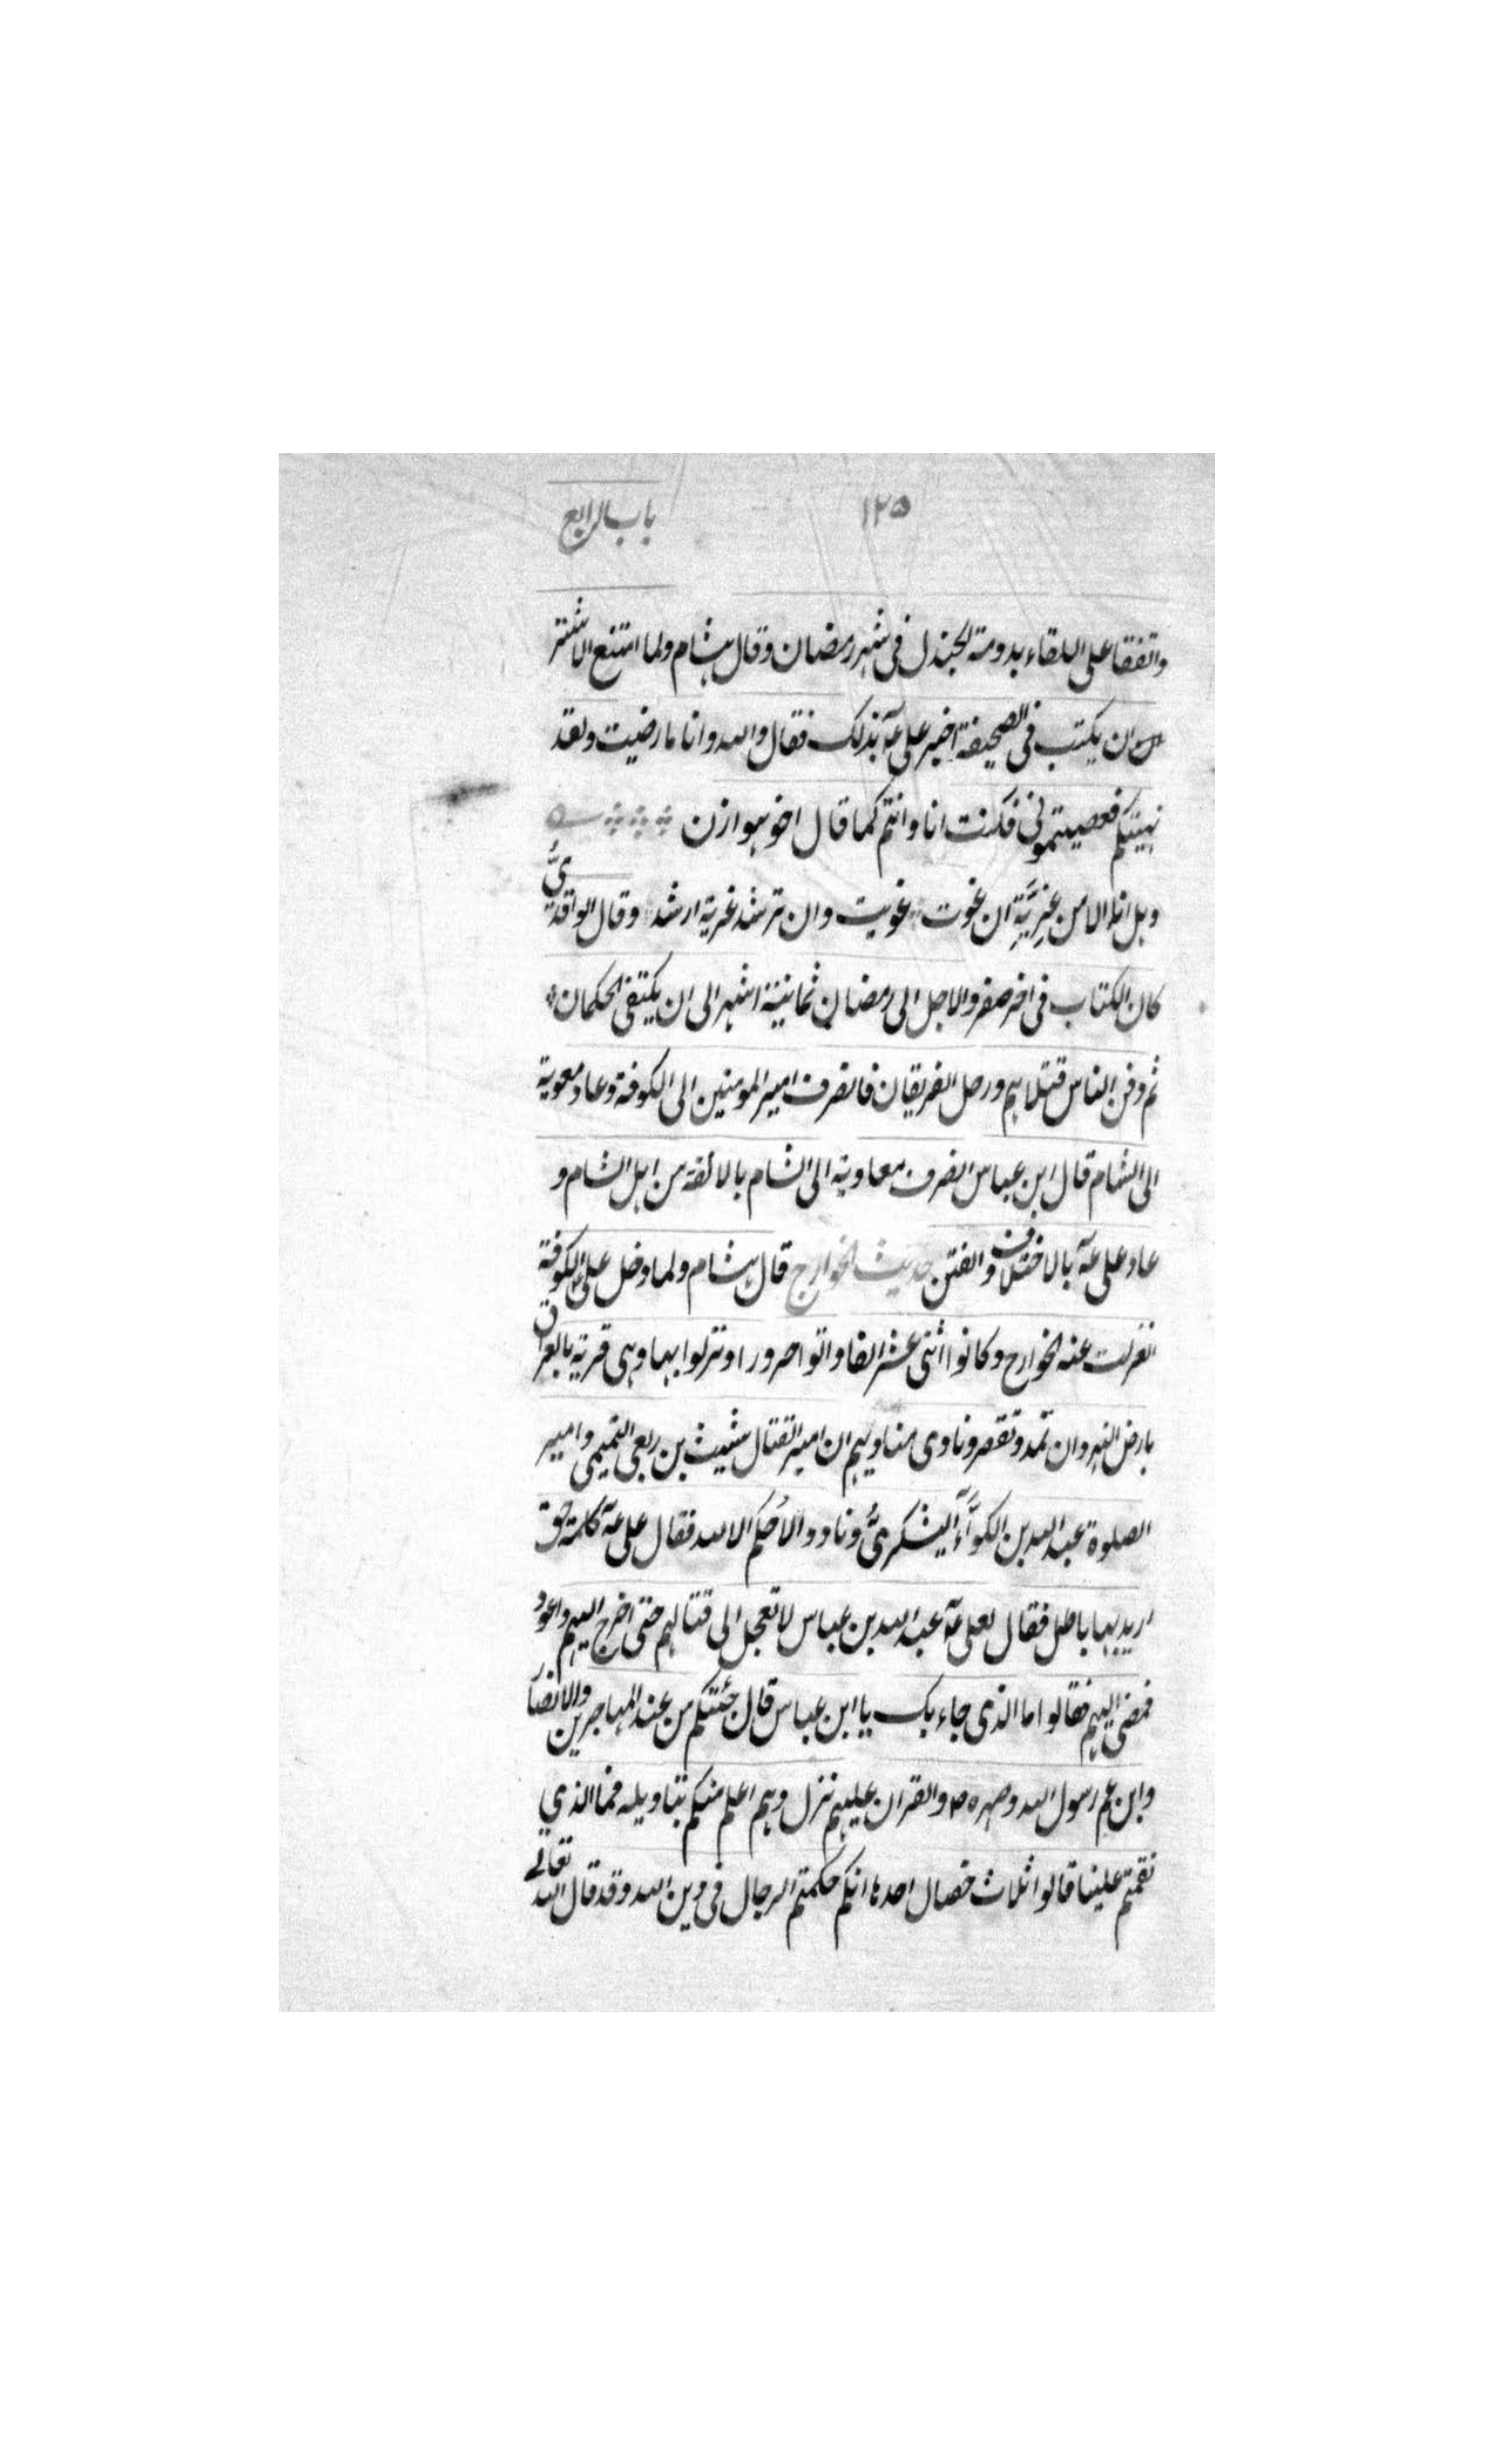 ١٢٥ باب الرابع
واتفقا على اللقاء بدومة الجندل فى شهر رمضان وقال هشام ولما امتنع الاشتر
من ان يكتب فى الصحيفة اخبر على عـ بذلك فقال والله وانا ما رضيت ولقد
نهيتكم فعصيتمونى فكنت انا وانتم كما قال اخو هوازن
وهل انا الا من غزية ان غوت غويت وان ترشد غزية ارشد وقال الواقدىّ
كان الكتاب فى اخر صفر والاجل الى رمضان ثمانية اشهر الى ان يكتفى الحكمان
ثم دفن الناس قتلاهم ورحل الفريقان فانصرف امير المومنين الى الكوفة وعاد معوية
الى الشام قال ابن عباس انصرف معاوية الى الشام بالالفة من اهل الشام و
عاد على عـ بالاختلاف والفتن حديث الخوارج قال هشام ولما دخل على الكوفة
انعزلت عنه الخوارج وكانوا اثنى عشر الفا واتوا حرورا ونزلوا بها وهى قرية بالعراق
بارض النهروان تمد وتقصر ونادى مناديهم ان امير القتال شبيث بن ربعى التميمى وامير
الصلوة عبد الله بن الكوَّاء اليشكرىُّ ونادوا الا حُكم الا لله فقال على عـ كلمة حق
اريد بها باطل فقال لعلى عـ عبد الله بن عباس لا تعجل الى قتالهم حتى اخرج اليهم واعود
فمضى اليهم فقالوا ما الذى جاء بك يا ابن عباس قال جئتكم من عند المهاجرين والانصار
وابن عم رسول الله وصهره ص والقران عليهم نزل وهم اعلم منكم بتاويله فما الذي
نقمتم علينا قالوا ثلاث خصال احدها انكم حكمتم الرجال فى دين الله وقد قال الله تعالے